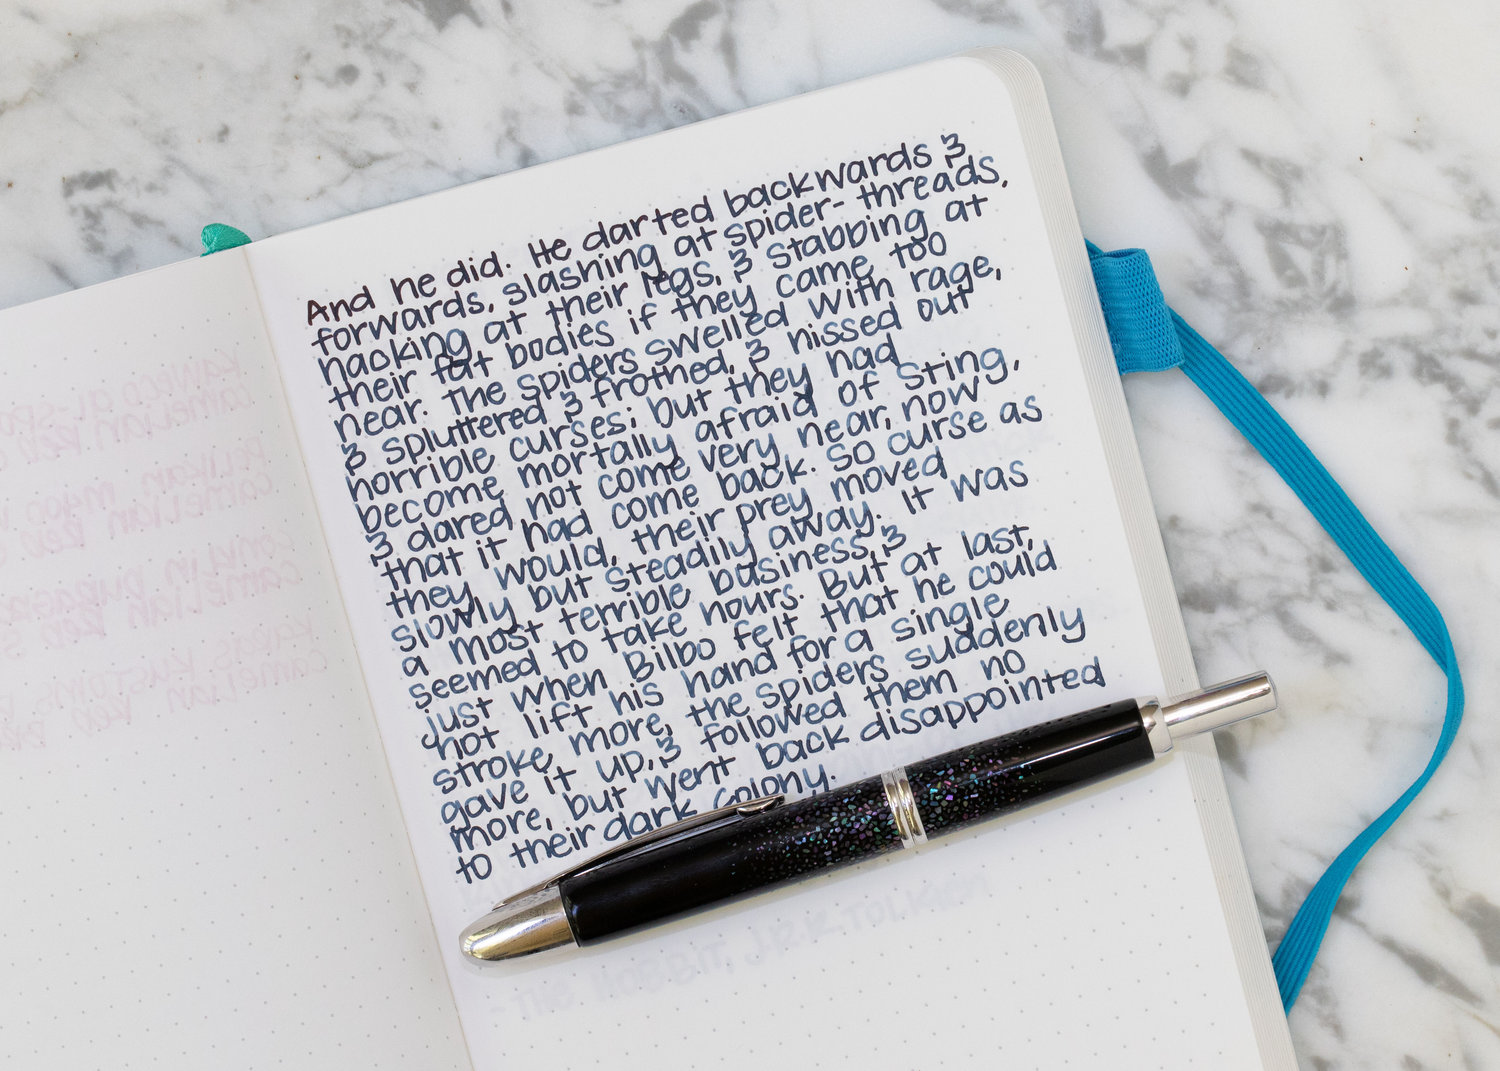 And he did. He darted backwards &
forwards, slashing at spider-threads,
hacking at their legs, & stabbing at
their fat bodies if they came too
near. The spiders swelled with rage,
& spluttered & frothed, & hissed out
horrible curses; but they had
become mortally afraid of Sting,
& dared not come very near, now
that it had come back. So curse as
they would, their prey moved
slowly but steadily away. It was
a most terrible business, &
seemed to take hours. But at last,
just when Bilbo felt that he could
not lift his hand for a single
stroke more, the spiders suddenly
gave it up, & followed them no
more, but went back disappointed
to their dark colony.